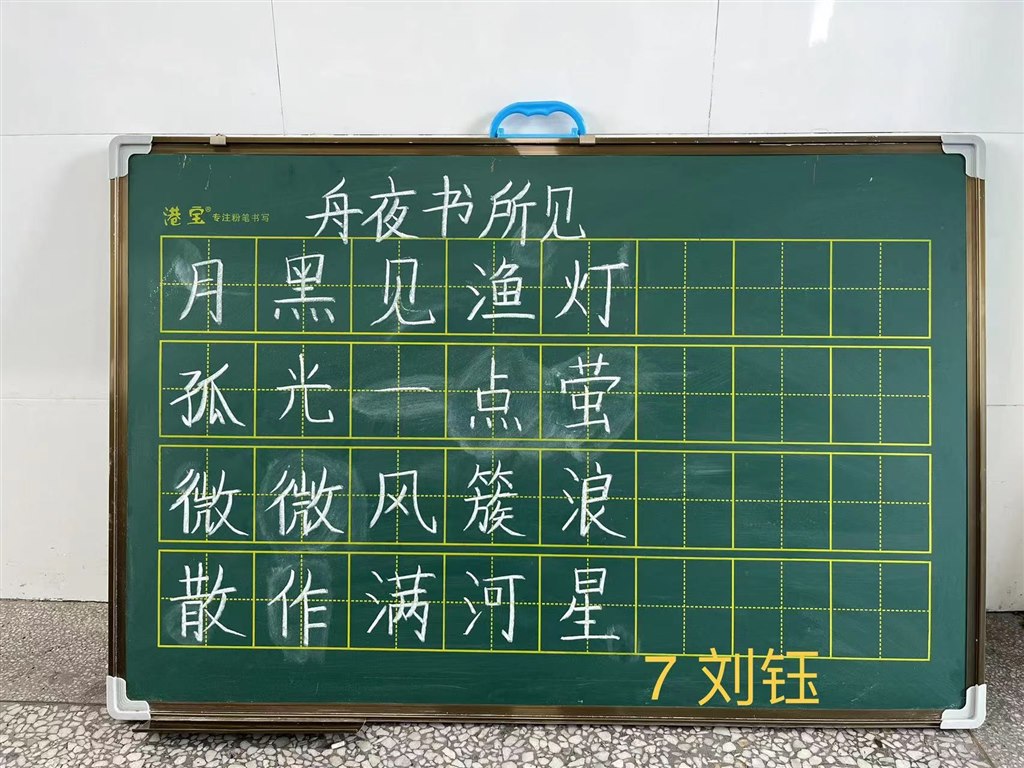 舟夜书所见
港宝® 专注粉笔书写
月黑见渔灯
孤光一点萤
微微风簇浪
散作满河星
7 刘钰